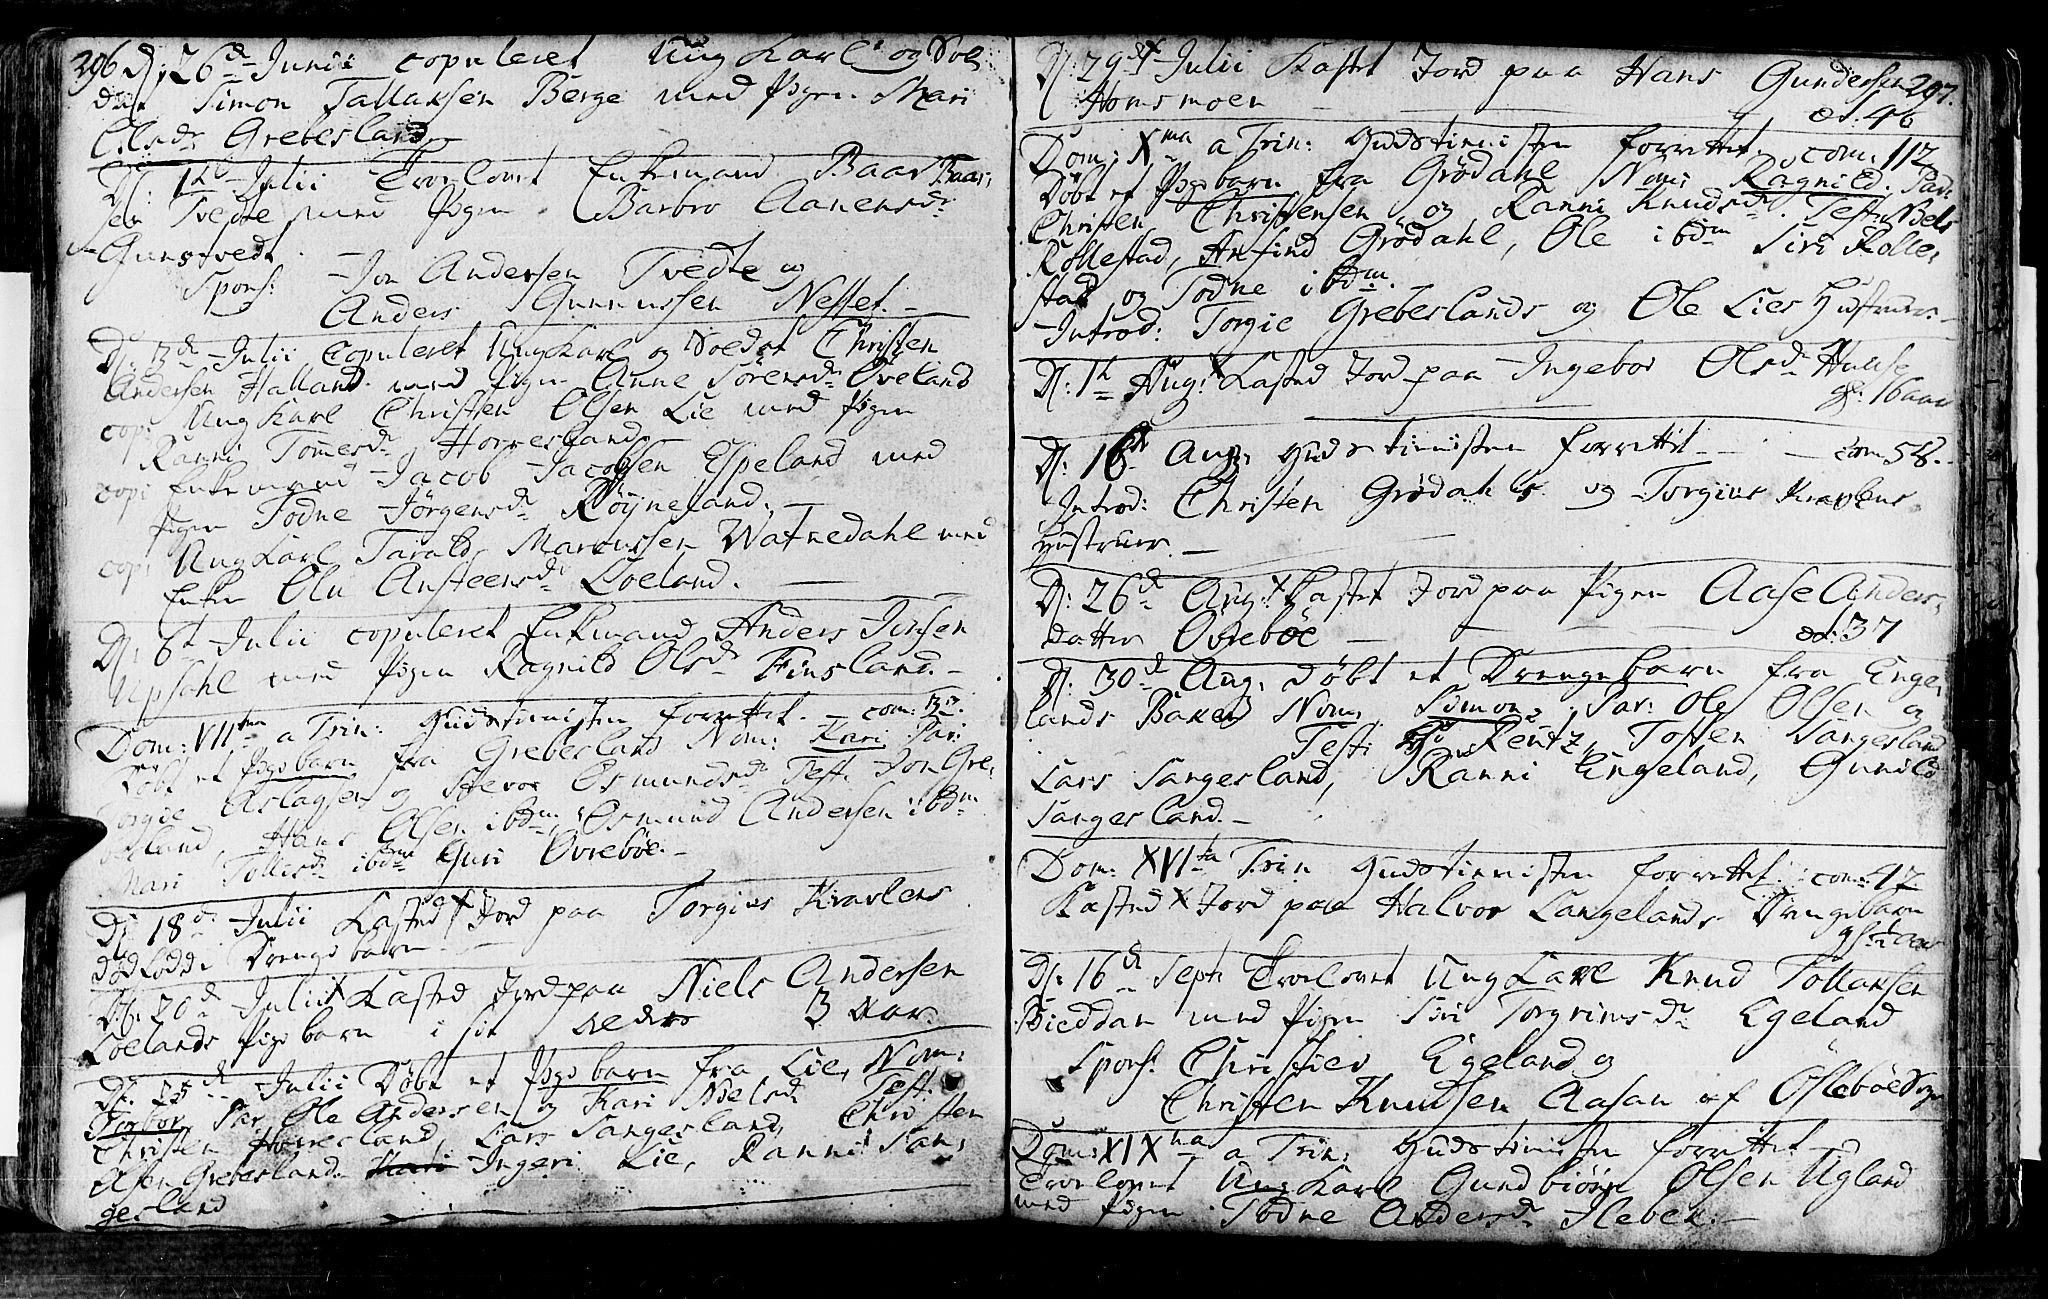 396 D: 26d Junii copuleret Ung Karl og Sol,
dat Simon Tallaksen Berge med Pigen Mari
Olsdr Grebesland
D: 1te Julii Trolovet Enkemand Baar Baar,
sen Tvedte med Pigen Barbro Aanensdr
Gunstvedt.
Spons: Jon Andersen Tvedte og
Anders Gunnussen Nesset.
D: 3de Julii Copuleret Ung Karl og Soldat Christen
Andersen Halland med Pigen Anne Sörensdr Öveland
cop: Ung Karl Christen Olsen Lie med Pigen
Ranni Tomesdr Horresland
cop: Enkemand Jacob Jacobsen Espeland med
Pigen Todne Jörgensdr Röyneland.
cop: Ung Karl Tarald Marcussen Watnedahl med
Enken Olu Ansteensdr Loeland.
D: 6t Julii copuleret Enkemand Anders Jensen
Upsahl med Pigen Ragnild Olsdr Finsland.
Dom: VIIma a Trin: Gudstienisten forrettet. com: 33.
Döbt et Pigebarn fra Grebesland Nom: Kari Par:
Torgie Aslagsen og Osmundsdr Test: Jon Gre,
besland, Hans Olsen ibdm, Osmund Andersen ibdm
Mari Tollesdr ibdm Guri Övreböe.
D: 18d Julii Kasted Jord paa Torgius Kravlens
dödfödde Drenge barn
D: 20d Julii Kasted Jord paa Niels Andersen
Loelands Pigebarn i sit Alders 3 Aar.
D: 25d Julii Döbt et Pigebarn fra Lie, Nom:
Par Ole Andersen og Kari Nielsdr Test:
Christen Horresland, Lars Sangesland, Christen
Olsen Grebesland Ingeri Lie, Ranni San,
gesland
D: 29d Julii Kastet Jord paa Hans Gundersen 297.
Homsmoen æt: 46
Dom: Xma a Trin: Gudstienisten forrettet. com: 112
Döbt et Pigebarn fra Grödahl Nom: Ragnild. Par:
Christen Christensen og Ranni Knudsdr. Test: Nels
Röllestad, Anfind Grödahl, Ole ibdm Siri Rölle,
stad og Todne ibdm.
Introd: Torgie Grebeslands og Ole Lies Hustruer.
D: 1te Aug: Kasted Jord paa Ingebor Olsdr Hulse
gl: 16 aar
D: 16de Aug: Gudstienisten forrettet com 58.
Introd: Christen Grödahls og Torgius Kravlens
Hustruer.
D: 26d Aug: Kastet Jord paa Pigen Aase Anders,
datter Övreböe æt: 37
D: 30d Aug: döbt et Drengebarn fra Enge,
lands Baken Nom: Simon. Par: Ole Olsen og
Test: Rentz, Tosten Sangesland
Lars Sangesland, Ranni Engeland, Gunild
Sangesland.
Dom: XVIta Trin Gudstienisten forrettet. com: 47
Kasted Jord paa Halvor Langelands Drengebarn
D: 16d Sept: Trolovet Ung Karl Knud Tollaksen
Bieddan med Pigen Siri Torgrimsdr Egeland
Spons: Christian Egeland og
Christen Knudsen Aasan af Ösleböe Sogn
Dom: XIXna a Trin: Gudstienisten forrettet
Trolovet Ung Karl Gundbiörn Olsen Ugland
med Pigen Todne Andersdr Ileben.